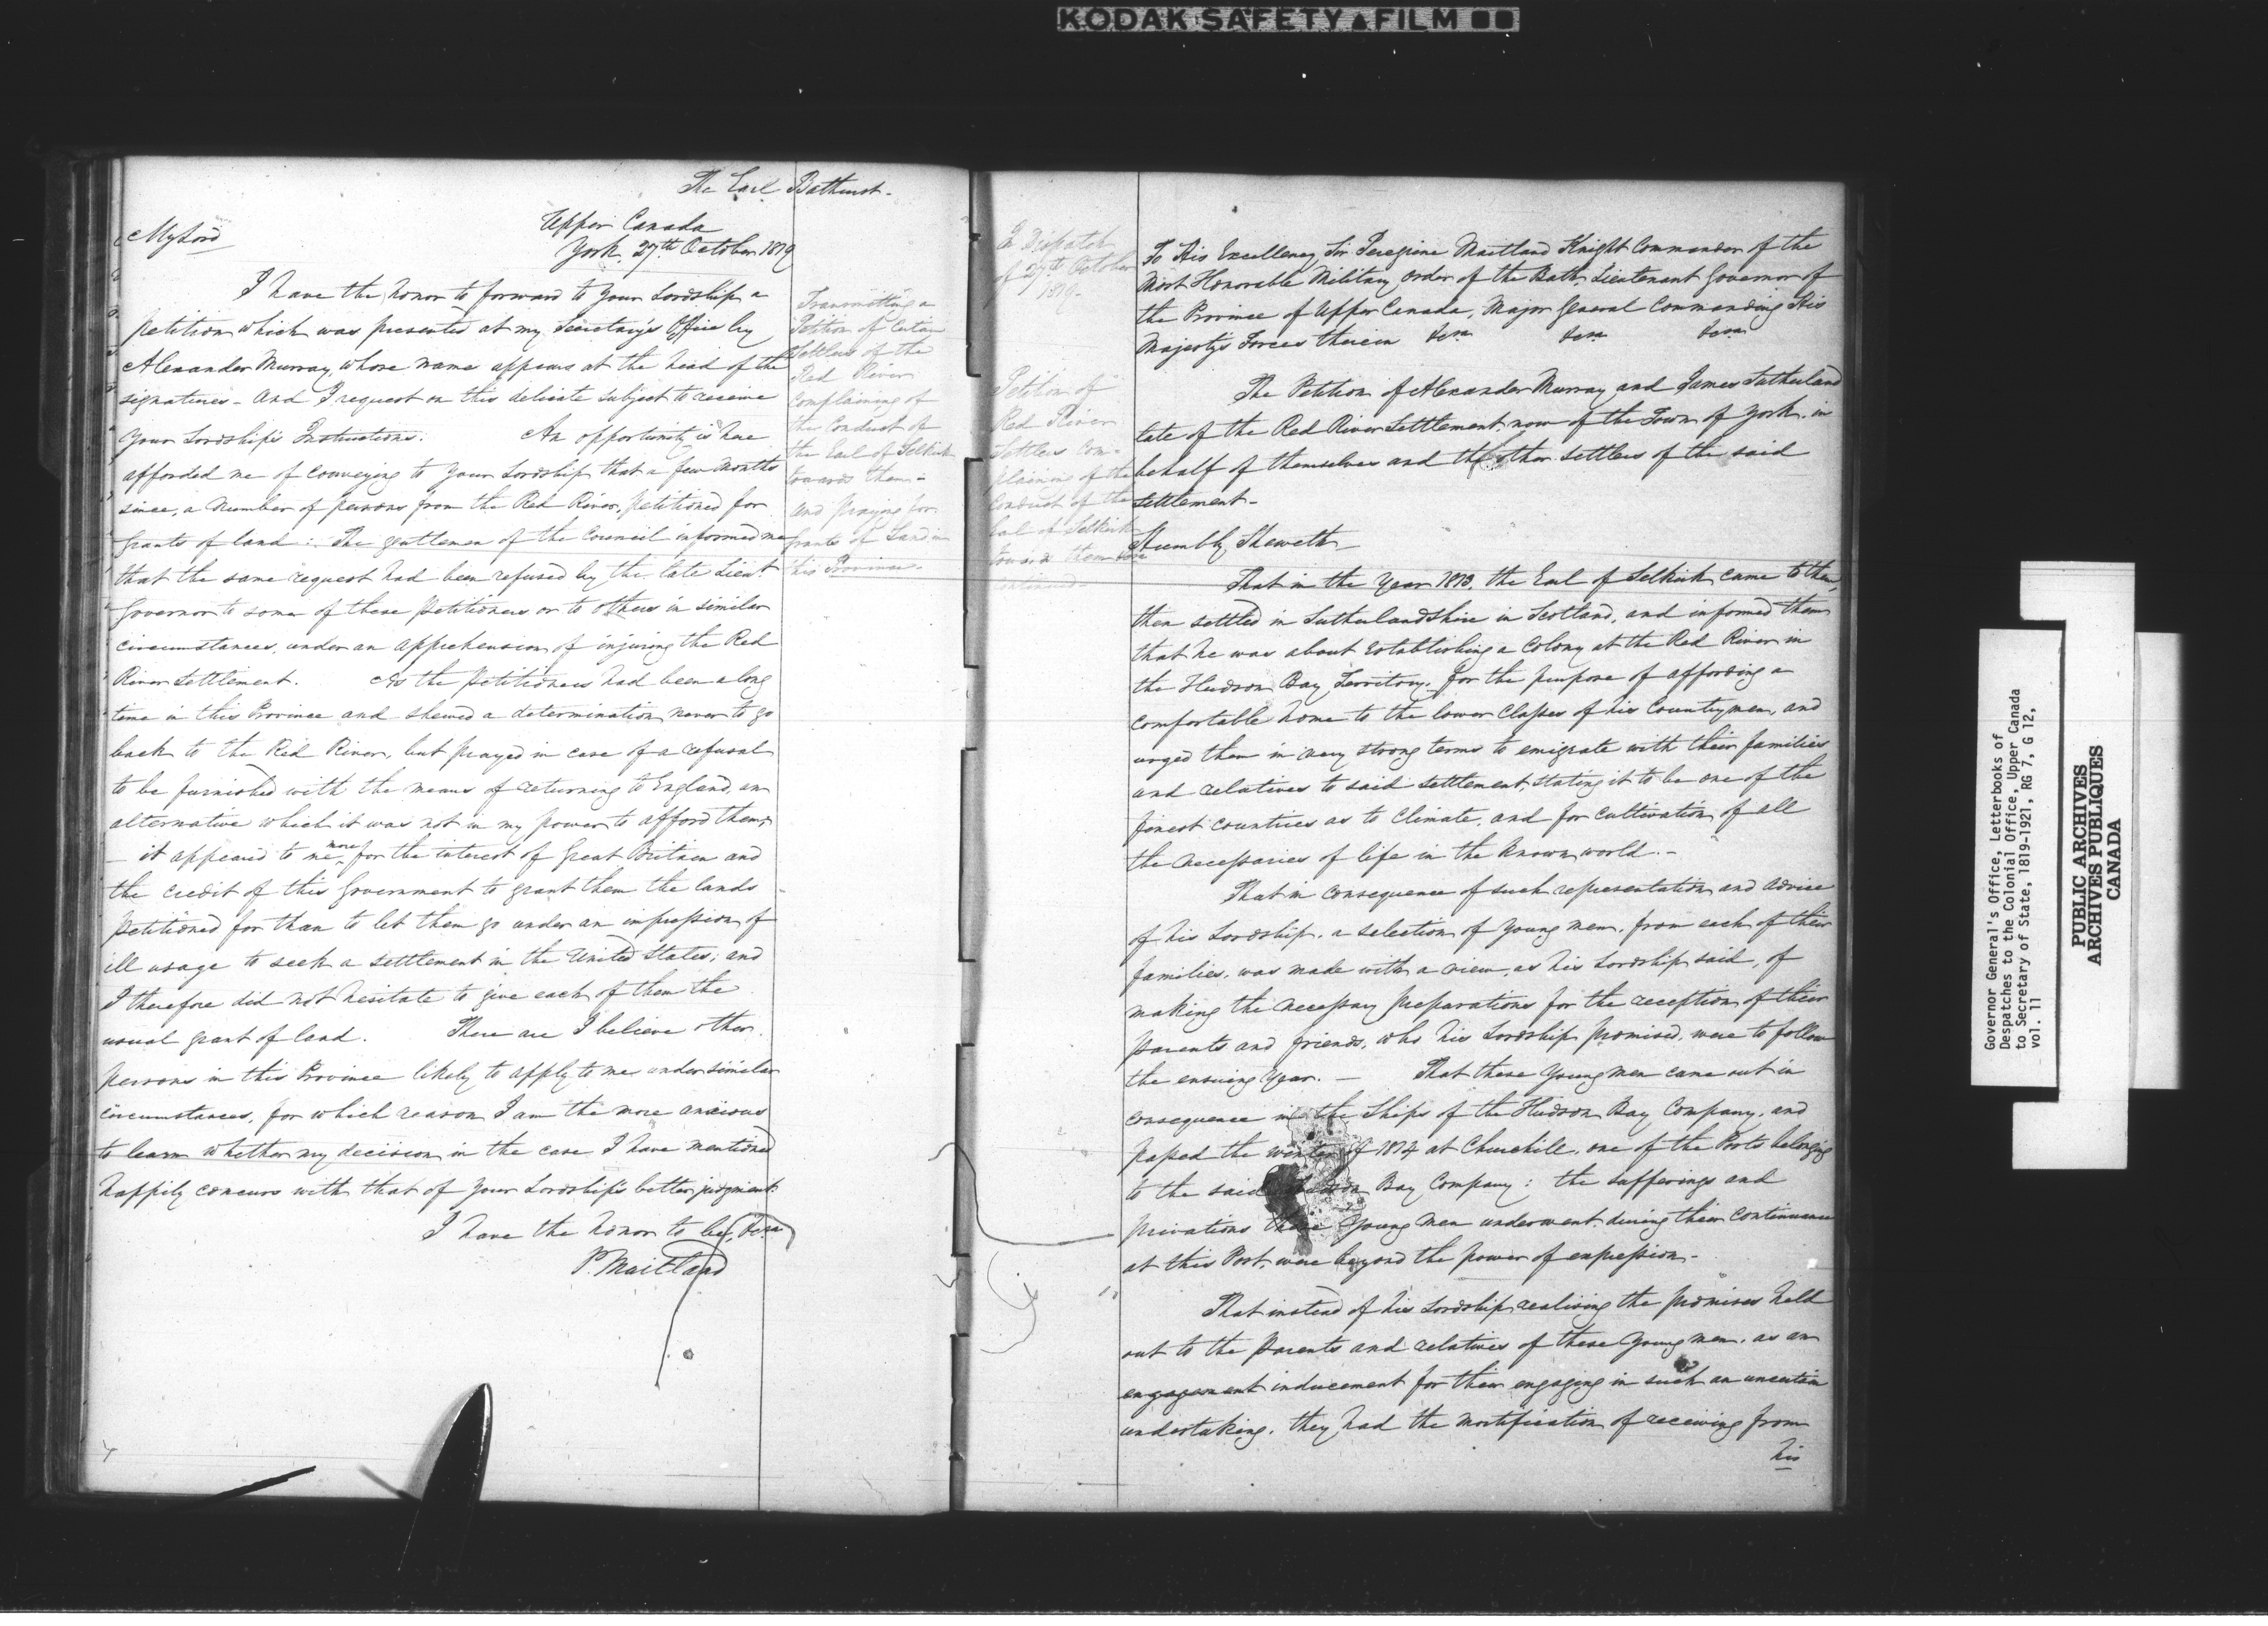 KODAK SAFETY FILM
The Earl Bathurst.
Upper Canada
My Lord
York. 27th October 1819
I have the honor to forward to Your Lordship a
petition which was presented at my Secretary's Office by
Alexander Murray, whose name appears at the head of the
signatures - And I request on this delicate subject to receive
Your Lordship's Instructions. An opportunity is here
afforded me of conveying to Your Lordship that a few months
since, a number of persons from the Red River, petitioned for
grants of land: The gentlemen of the Council informed me
that the same request had been refused by the late Lieut
Governor to some of these petitioners or to others in similar
circumstances, under an apprehension of injuring the Red
River Settlement. As the Petitioners had been a long
time in this Province and shewed a determination never to go
back to the Red River, but prayed in case of a refusal
to be furnished with the means of returning to England, an
alternative which it was not in my power to afford them,
- it appeared to me more for the interest of Great Britain and
the credit of this Government to grant them the lands
petitioned for than to let them go under an impression of
ill usage to seek a settlement in the United States; and
I therefore did not hesitate to give each of them the
usual grant of land. There are I believe other
persons in this Province likely to apply to me under similar
circumstances, for which reason I am the more anxious
to learn whether my decision in the case I have mentioned
happily concurs with that of Your Lordship's better judgment.
I have the honor to be, &c
P. Maitland
Transmitting a
Petition of Certain
Settlers of the
Red River
complaining of
the Conduct of
the Earl of Selkirk
towards them -
and praying for
Grants of Land in
this Province.
In Dispatch
of 27th October
1819.
Petition of
Red River
Settlers Com-
plaining of the
Conduct of the
Earl of Selkirk
towards them
To His Excellency, Sir Peregrine Maitland Knight Commander of the
Most Honorable Military Order of the Bath, Lieutenant Governor of
the Province of Upper Canada, Major General Commanding His
Majesty's Forces therein &c &c &c
The Petition of Alexander Murray and James Sutherland
late of the Red River Settlement, now of the Town of York, in
behalf of themselves and the other settlers of the said
settlement -
Humbly Sheweth
That in the Year 1813, the Earl of Selkirk came to them,
then settled in Sutherlandshire in Scotland, and informed them
that he was about establishing a Colony at the Red River in
the Hudson Bay Territory, for the purpose of affording a
comfortable home to the lower Classes of his Countrymen, and
urged them in very strong terms to emigrate with their families
and relatives to said settlement, stating it to be one of the
finest countries as to Climate, and for cultivation of all
the necessaries of life in the known world. -
That in consequence of such representation and advice
of his Lordship, a selection of young men, from each of their
families, was made with a view, as his Lordship said, of
making the necessary preparations for the reception of their
parents and friends, who his Lordship promised, were to follow
the ensuing Year. - That these Young men came out in
consequence in the Ships of the Hudson Bay Company, and
passed the winter of 1814 at Churchill, one of the Posts belonging
to the said Hudson Bay Company: the sufferings and
privations these Young men underwent during their continuance
at this Post, were beyond the power of expression -
That instead of his Lordship realising the promises held
out to the Parents and relatives of these Young men, as an
engagement inducement for their engaging in such an uncertain
undertaking, they had the mortification of receiving from
his
Governor General's Office, Letterbooks of
Despatches to the Colonial Office, Upper Canada
to Secretary of State, 1819-1921, RG 7, G 12,
vol. 11
PUBLIC ARCHIVES
ARCHIVES PUBLIQUES
CANADA